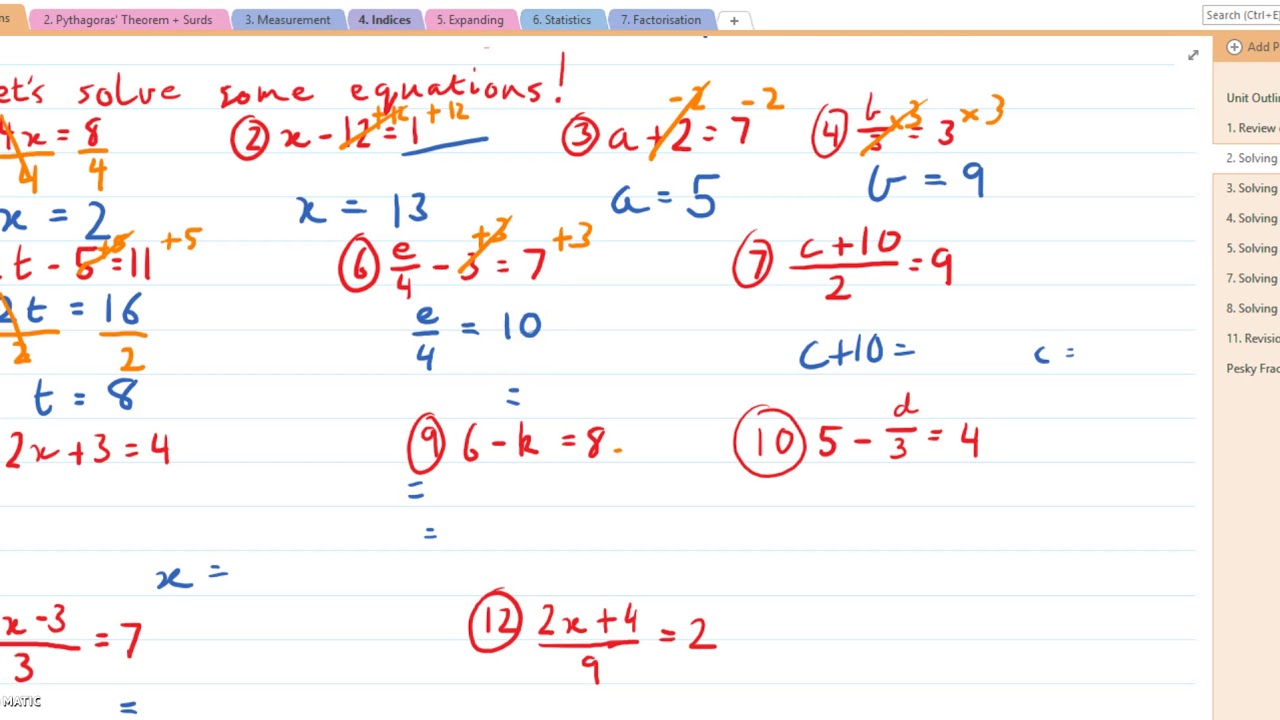 ns 2. Pythagoras' Theorem + Surds 3. Measurement 4. Indices 5. Expanding 6. Statistics 7. Factorisation +
Search (Ctrl+E)
et's solve some equations!
4x = 8 ② x - 12 = 1 +12 +12 ③ a + 2 = 7 -2 -2 ④ b/3 = 3 ×3 ×3
4 4
x = 2 x = 13 a = 5 b = 9
t - 5 = 11 +5 +5 ⑥ e/4 - 3 = 7 +3 +3 ⑦ (c + 10)/2 = 9
2t = 16 e/4 = 10
2 2 c + 10 = c =
t = 8 =
2x + 3 = 4 ⑨ 6 - k = 8 - ⑩ 5 - d/3 = 4
=
=
x =
(x - 3)/3 = 7 ⑫ (2x + 4)/9 = 2
=
MATIC
Add P
Unit Outlin
1. Review
2. Solving
3. Solving
4. Solving
5. Solving
7. Solving
8. Solving
11. Revisio
Pesky Frac